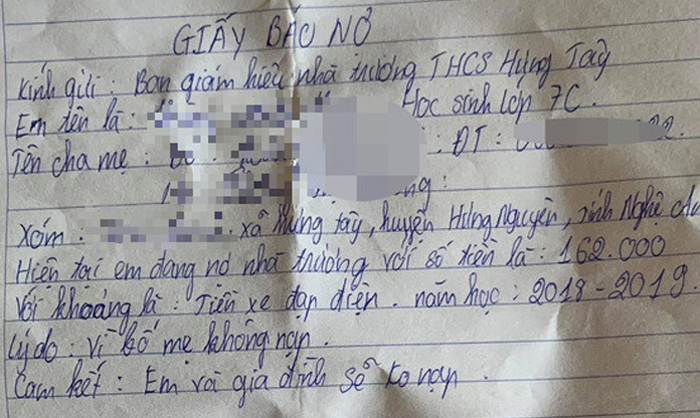 GIẤY BÁO NỢ
Kính gửi : Ban giám hiệu nhà trường THCS Hưng Tây
Em tên là : Học sinh lớp 7C.
Tên cha mẹ : ĐT :
Xóm : xã Hưng tây, huyện Hưng Nguyên, tỉnh Nghệ An
Hiện tại em đang nợ nhà trường với số tiền là : 162.000
Với khoảng là : Tiền xe đạp điện . năm học : 2018 - 2019.
Lý do : Vì bố mẹ không nạp.
Cam kết : Em và gia đình sẽ ko nạp .